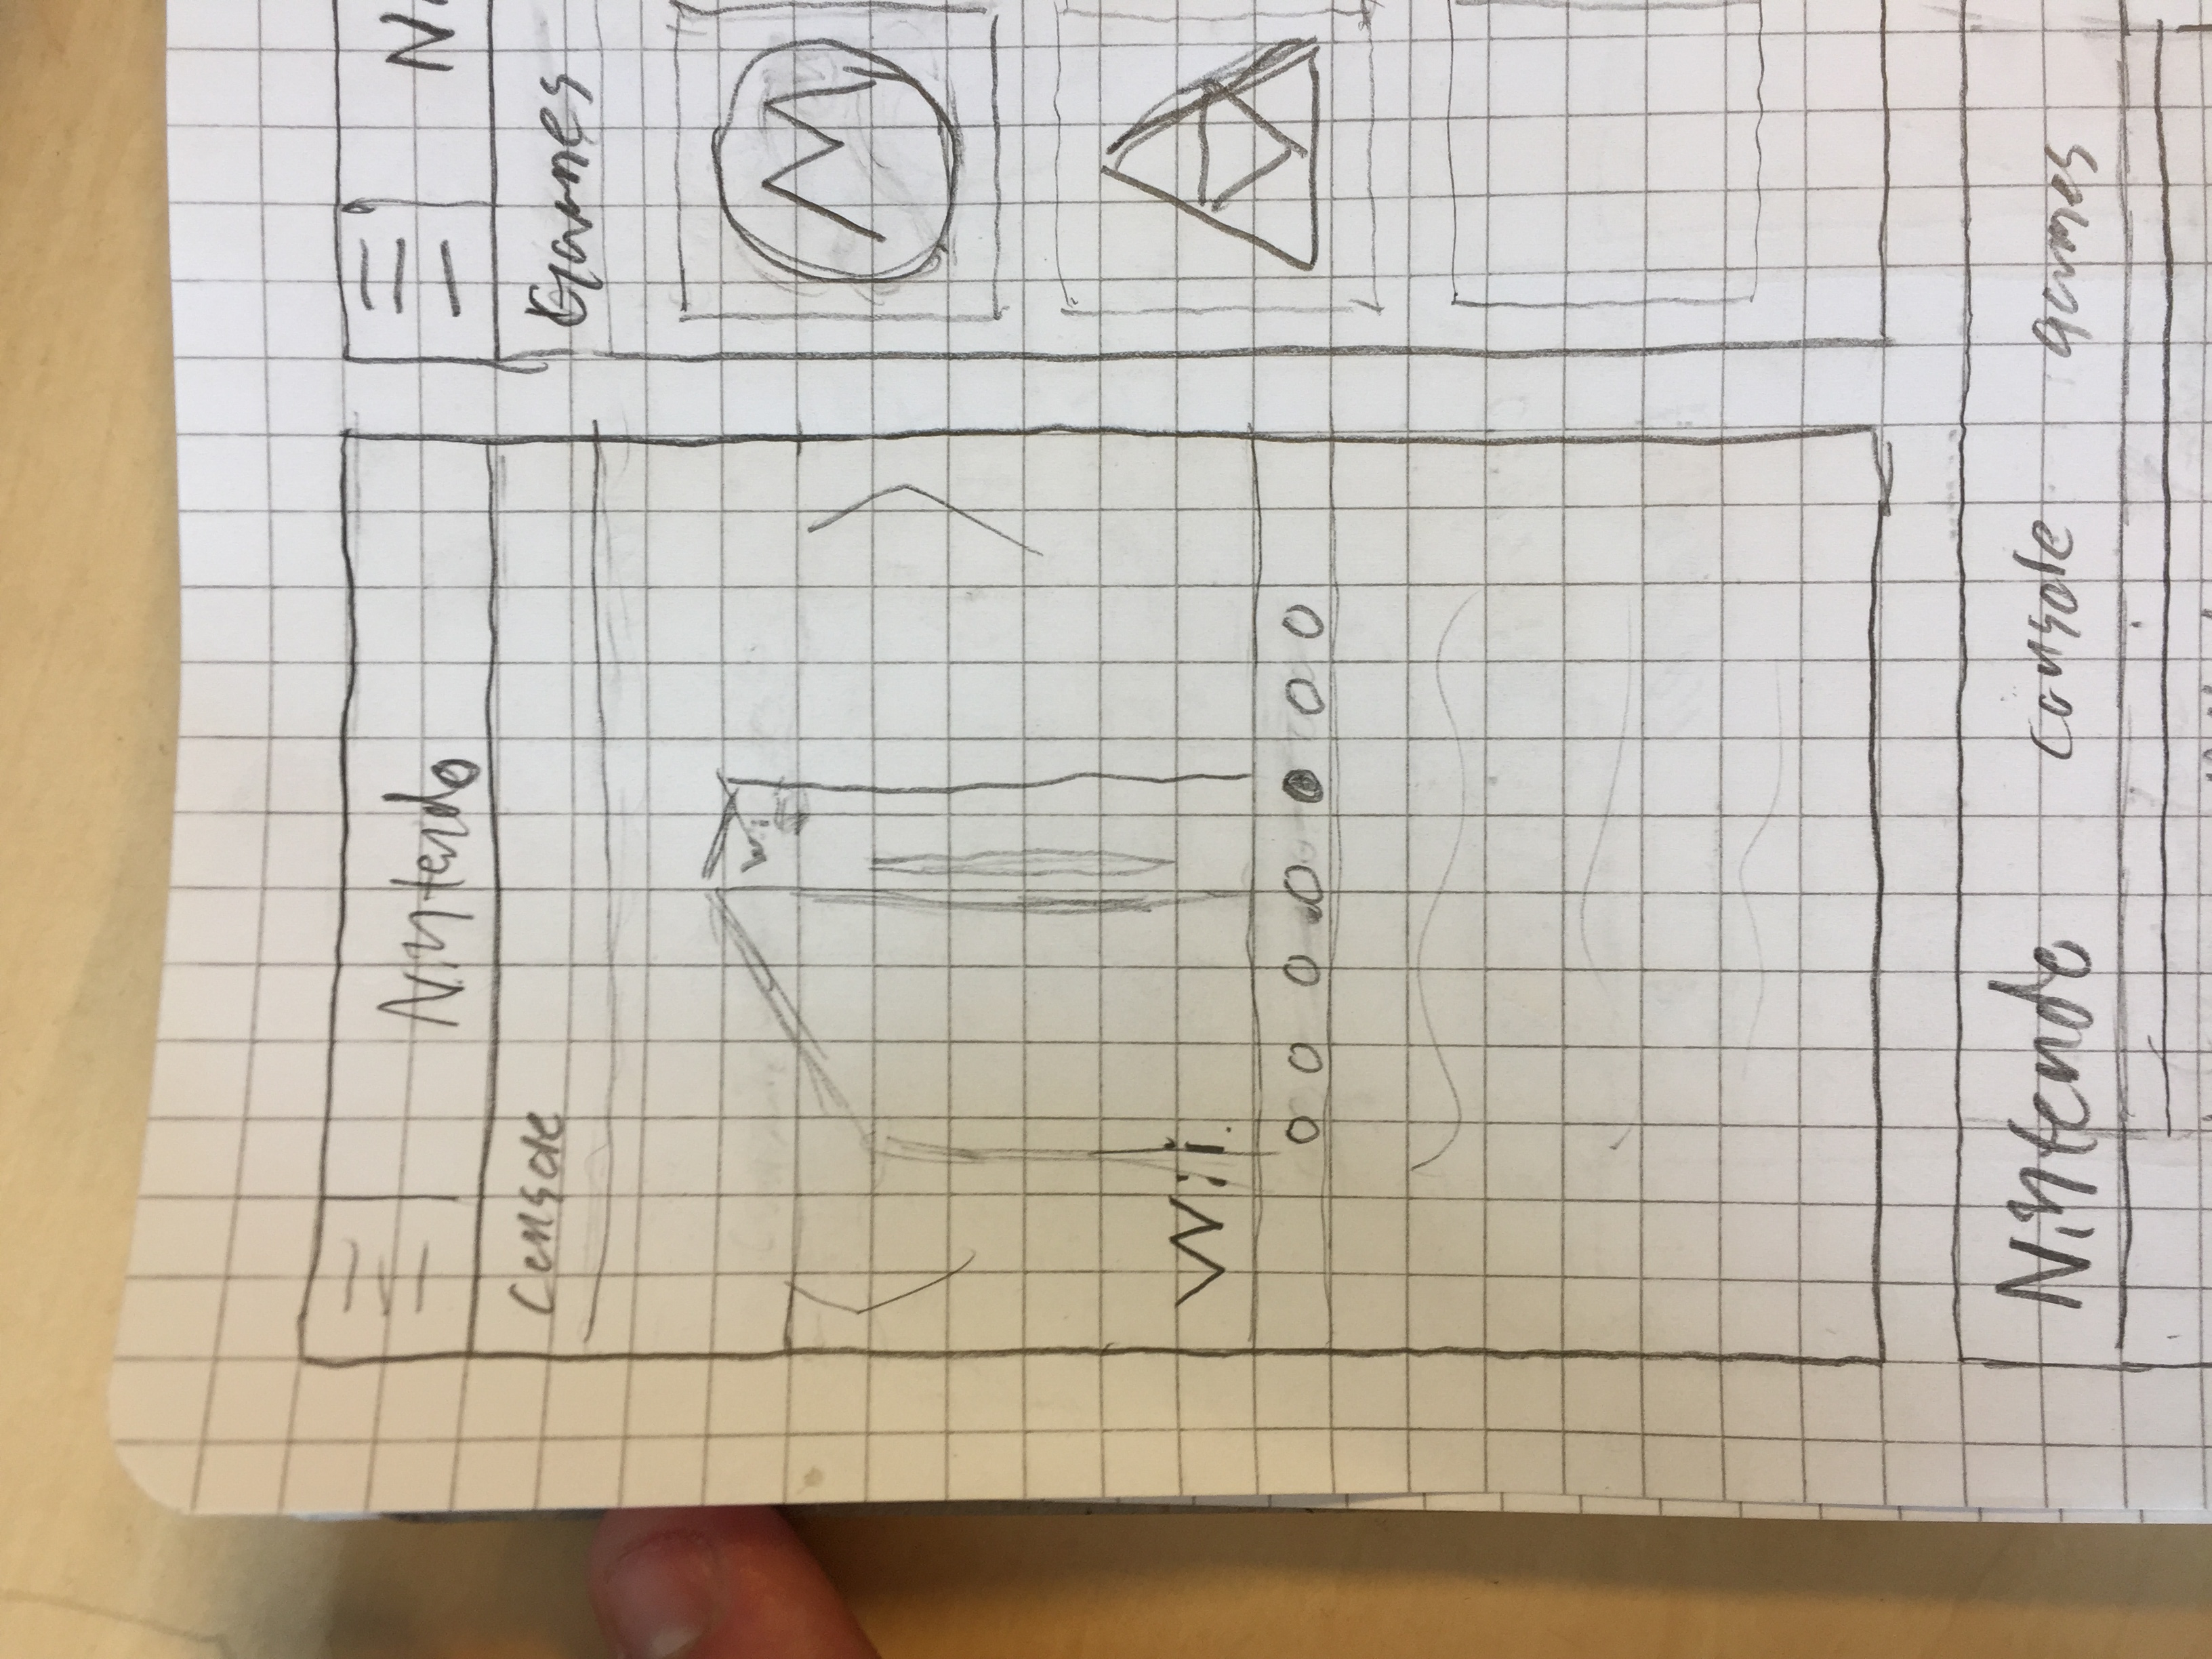 Nintendo
Console
Wii
Wii
N
Games
M
Nintendo console games